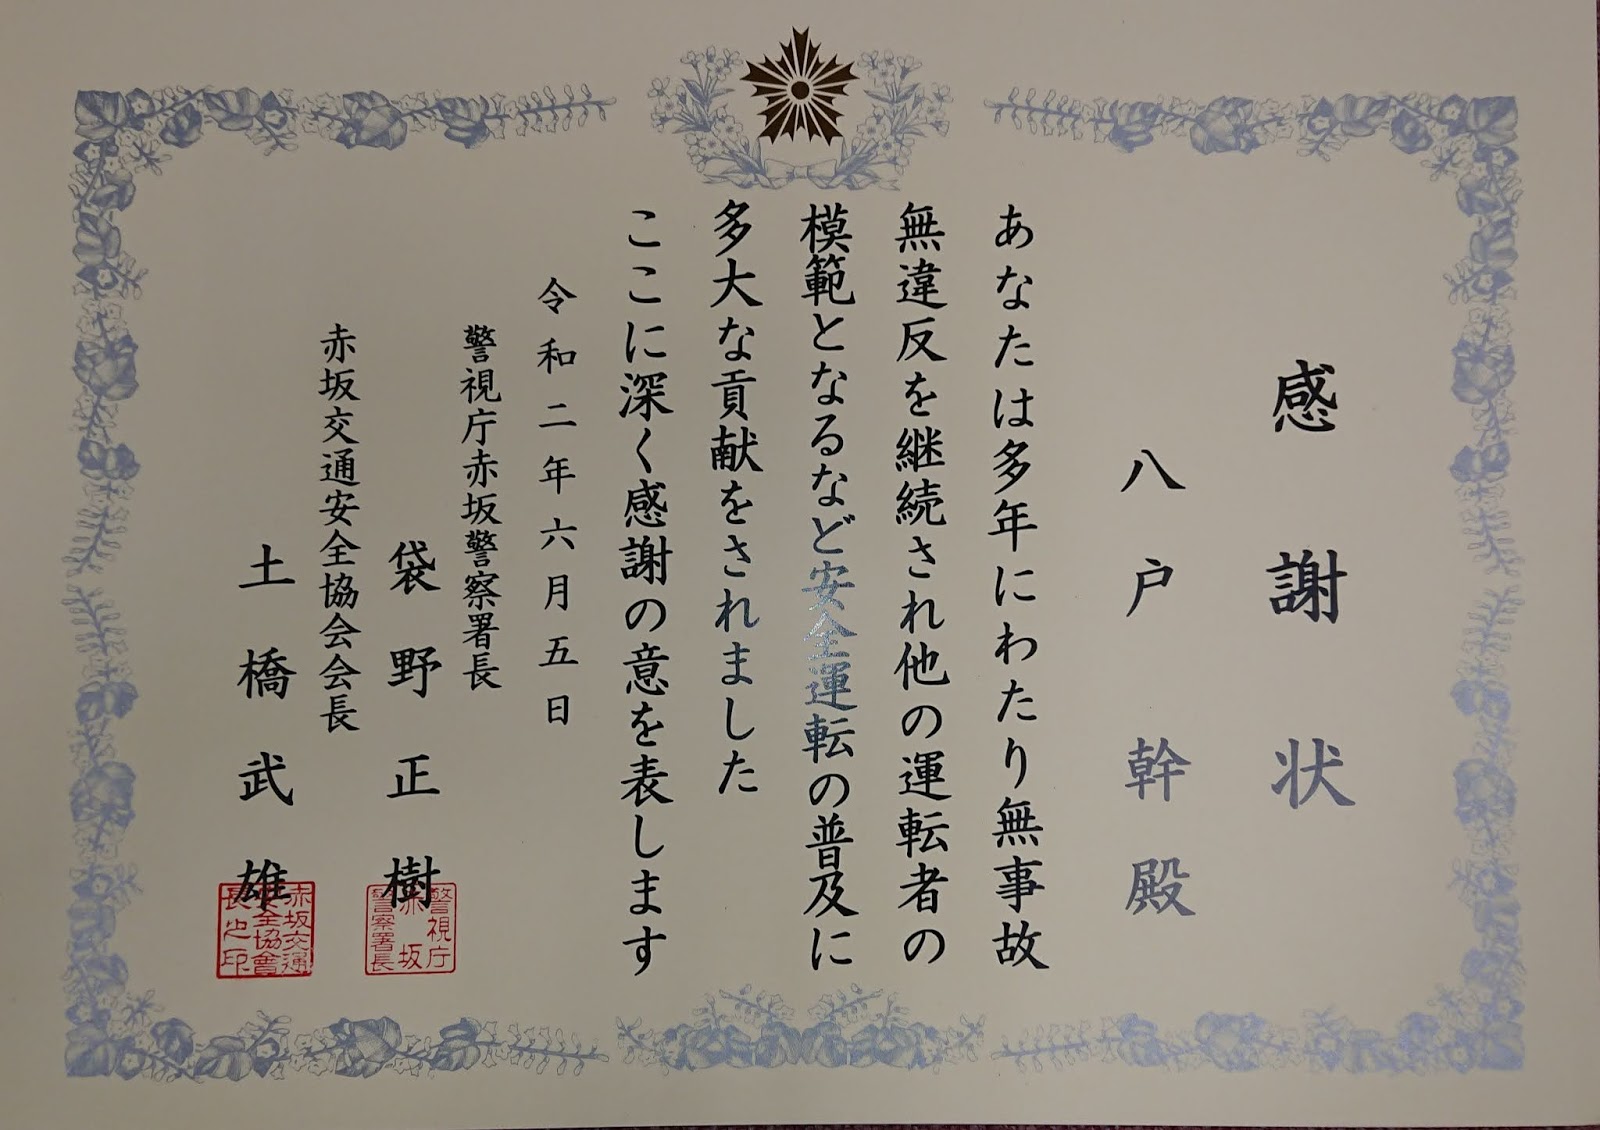 感謝状
八戸幹殿
あなたは多年にわたり無事故
無違反を継続され他の運転者の
模範となるなど安全運転の普及に
多大な貢献をされました
ここに深く感謝の意を表します
令和二年六月五日
警視庁赤坂警察署長
袋野正樹
警視庁
赤坂
警察署長
赤坂交通安全協会会長
土橋武雄
赤坂交通
安全協會
長之印